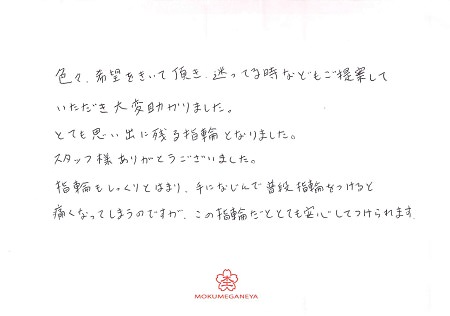 色々、希望をきいて頂き、迷ってる時などもご提案して
いただき大変助かりました。
とても思い出に残る指輪となりました。
スタッフ様ありがとうございました。
指輪もしっくりとはまり、手になじんで普段指輪をつけると
痛くなってしまうのですが、この指輪だととても安心してつけられます。
MOKUMEGANEYA